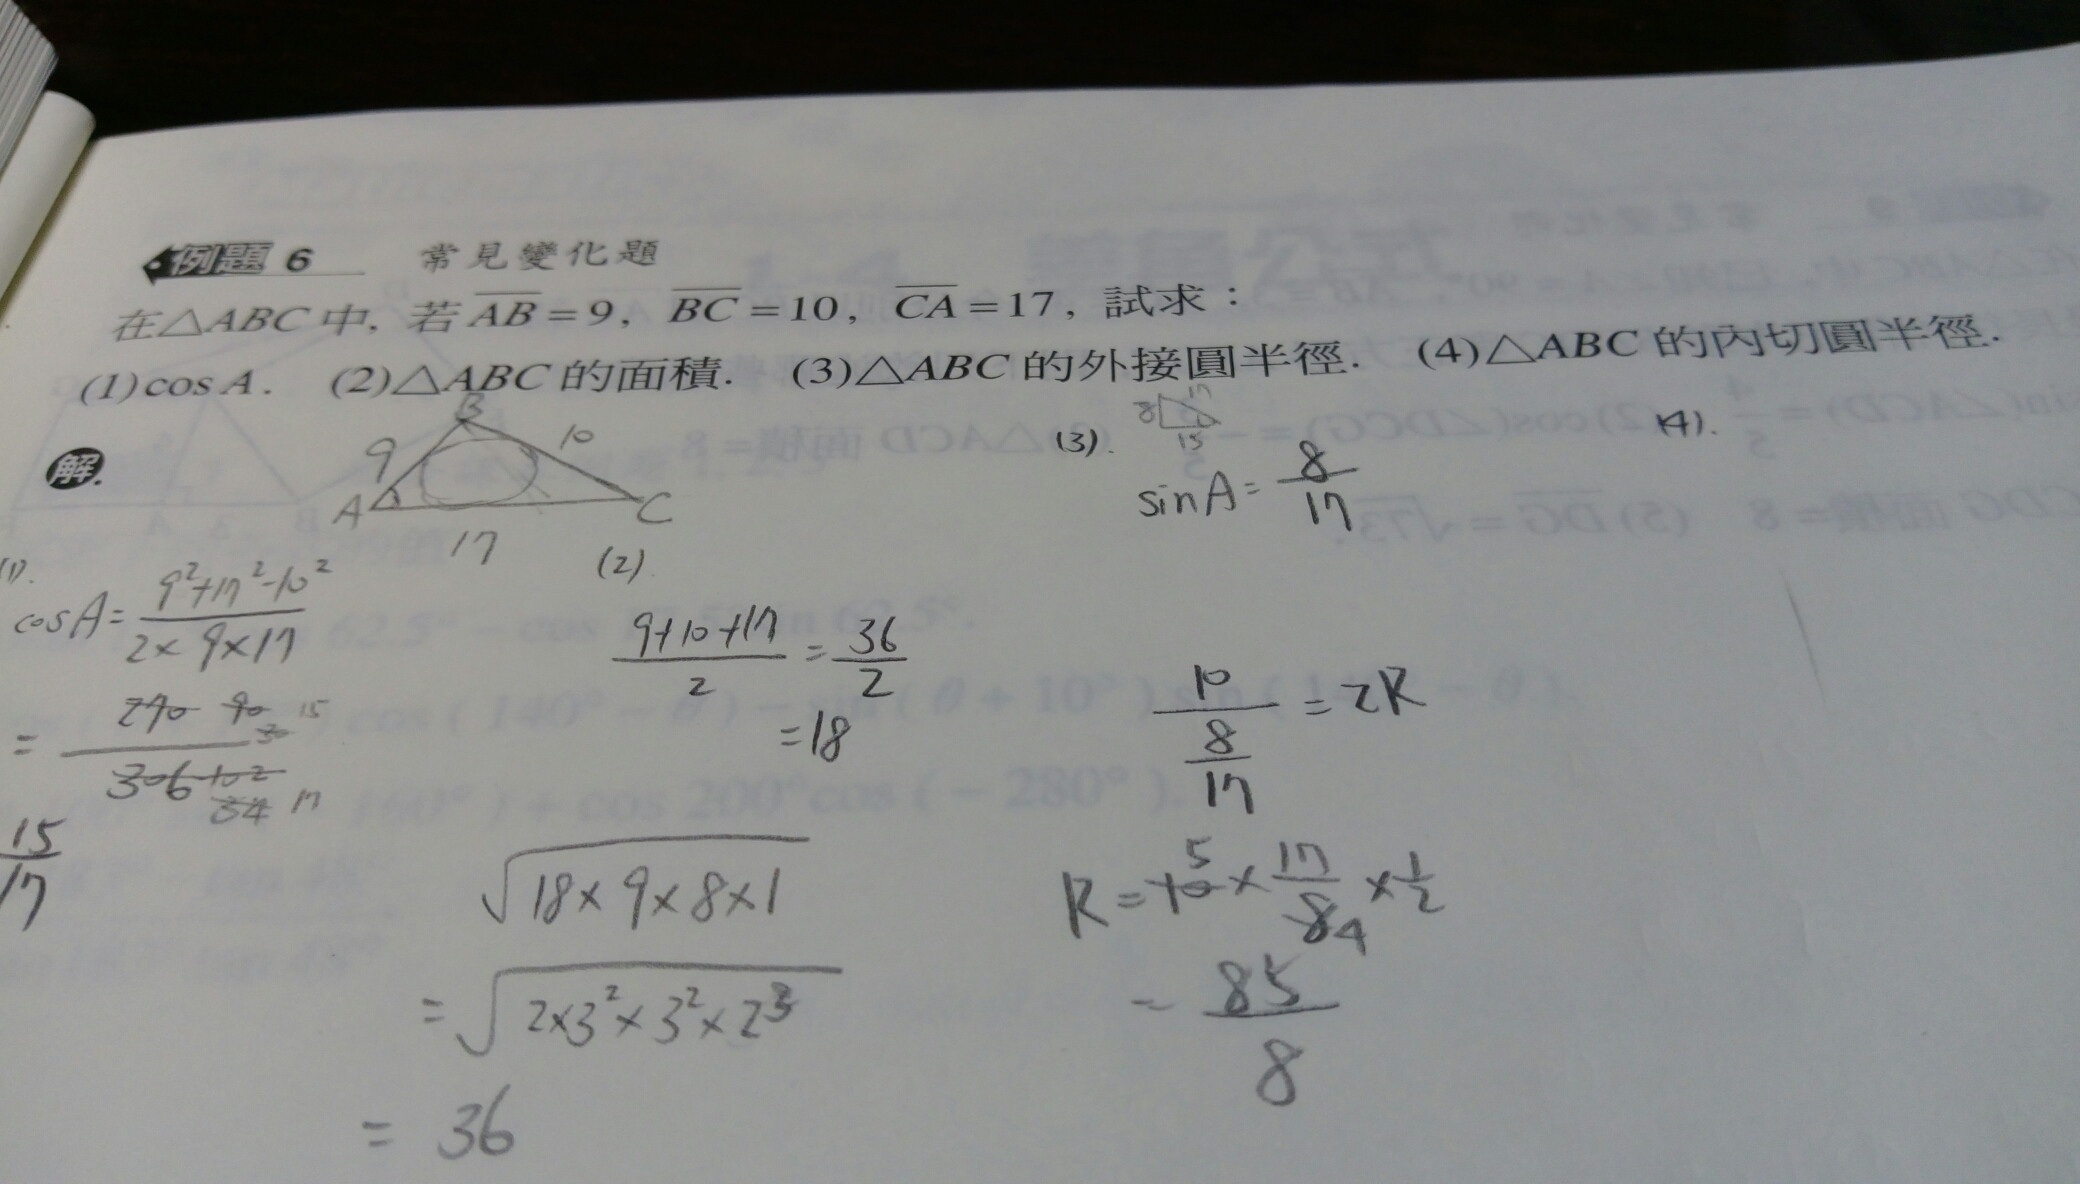 例題 6 常見變化題
在△ABC 中, 若 AB = 9, BC = 10, CA = 17, 試求：
(1) cos A. (2)△ABC 的面積. (3)△ABC 的外接圓半徑. (4)△ABC 的內切圓半徑.
解.
B
9
10
A
C
17
(1).
cosA = \frac{9²+17²-10²}{2×9×17}
= \frac{270 90 30 15}{306 102 34 17}
\frac{15}{17}
(2).
\frac{9+10+17}{2} = \frac{36}{2}
= 18
√(18×9×8×1)
= √(2×3²×3²×2³)
= 36
(3).
8 17
15
sinA = \frac{8}{17}
\frac{10}{\frac{8}{17}} = 2R
R = 10 5 × \frac{17}{8 4} × \frac{1}{2}
= \frac{85}{8}
(4).